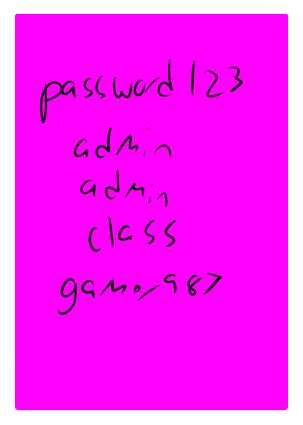 password123
admin
admin
class
gamer987